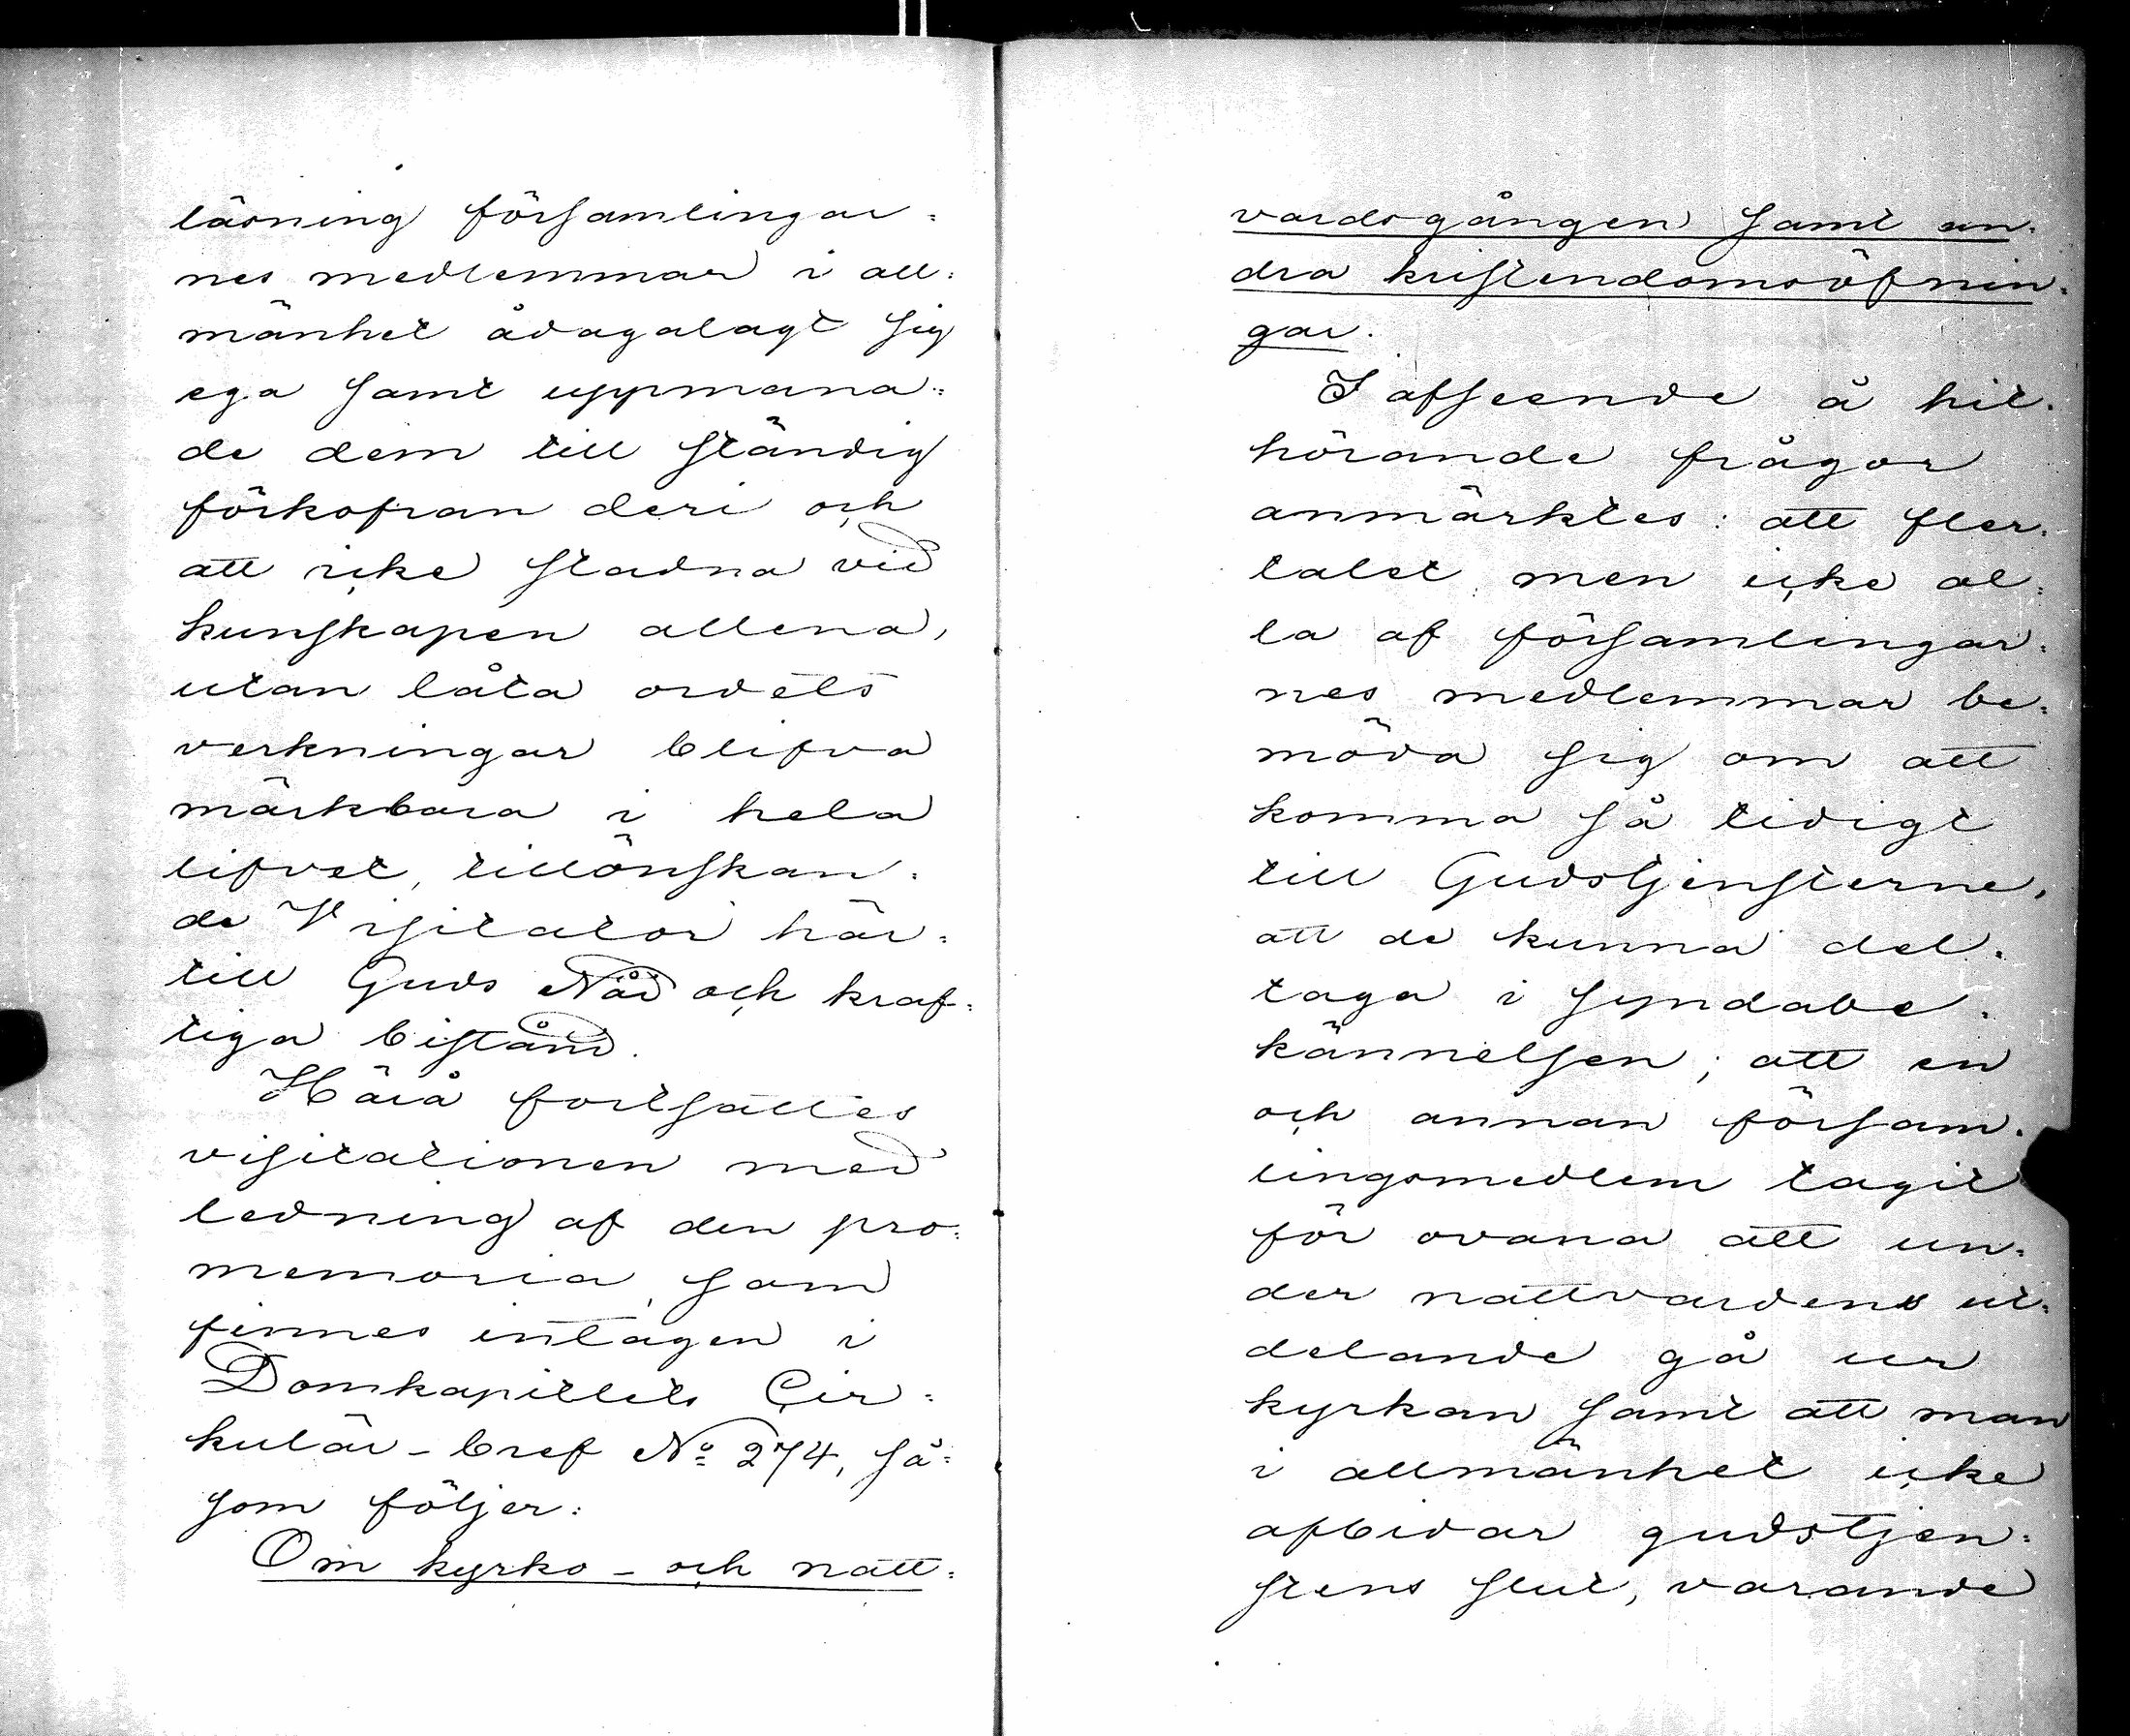 läsning församlingar=
nes medlemmar i all=
mänhet ådagalagt sig
ega samt uppmana=
de dem till ständig
förkofran deri och
att icke stadna vid
kunskapen allena,
utan låta ordets
verkningar blifva
märkbara i hela
lifvet, tillönskan=
de Visitator här=
till Guds Nåd och kraf=
tiga bistånd.
Härå fortsattes
visitationen med
ledning af den pro=
memoria, som
finnes intagen i
Domkapitlets Cir=
kulär-bref No 274, så=
som följer:
Om kyrko- och natt=
vardsgången samt an=
dra kristendomsöfnin=
gar.
I afseende å hit=
hörande frågor
anmärktes: att fler=
talet men icke al=
la af församlingar=
nes medlemmar be=
möda sig om att
komma så tidigt
till Gudstjensterne,
att de kunna del=
taga i syndabe=
kännelsen; att en
och annan försam=
lingsmedlem tagit
för ovana att un=
der nattvardens ut=
delande gå ur
kyrkan samt att man
i allmänhet icke
afbidar gudstjen=
stens slut, varande